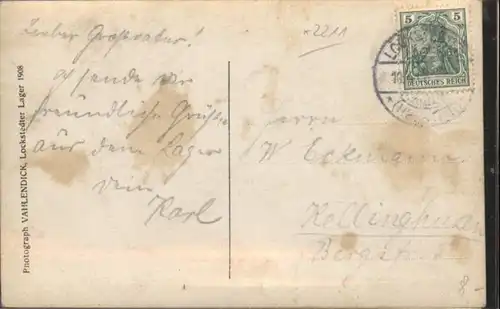 Lieber Grossvater!
sende dir
freundliche Grüsse
aus dem Lager
dein
Karl
Photograph VAHLENDICK, Lockstedter Lager 1908
*2211
5 5
DEUTSCHES REICH
Herrn
W Eckmann
Kellinghusen
8-